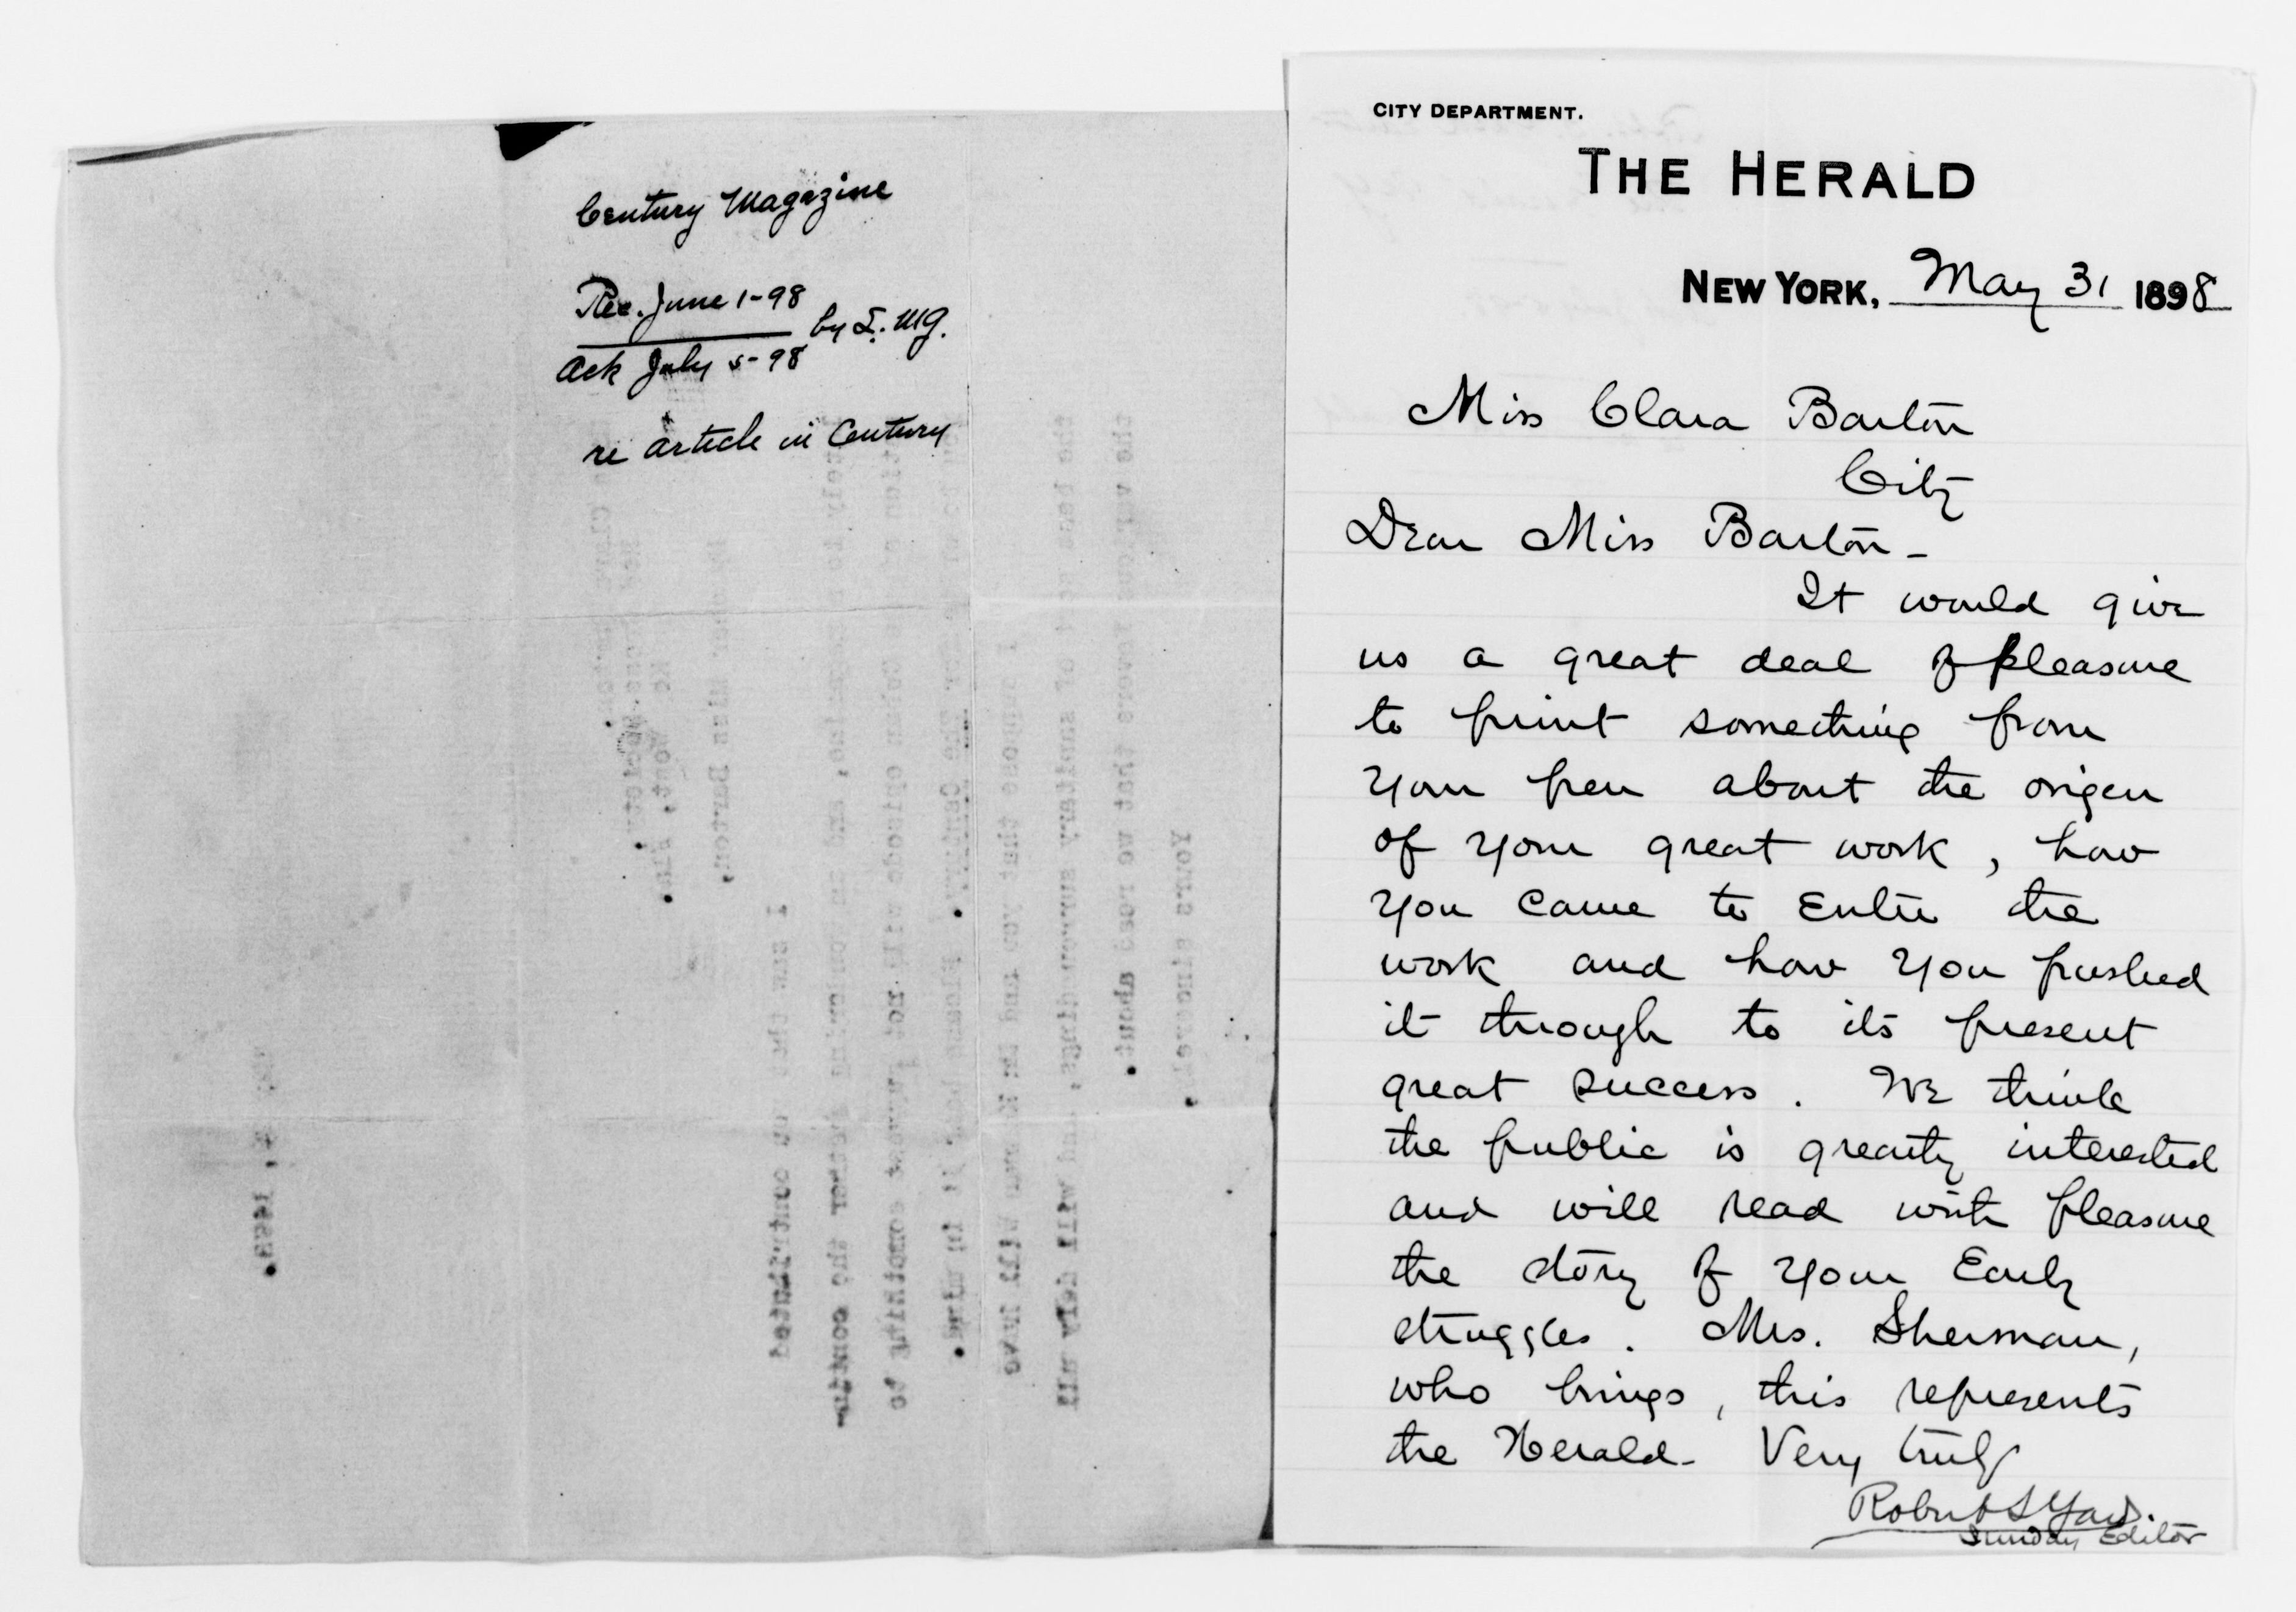 Century Magazine
Rec. June 1-98
by I. MG.
Ack July 5-98
re article in Century
CITY DEPARTMENT.
THE HERALD
NEW YORK, May 31 1898
Miss Clara Barton
City
Dear Miss Barton-
It would give
us a great deal of pleasure
to print something from
your pen about the origen
of your great work, how
you came to enter the
work and how you pushed
it through to its present
great success. We think
the public is greatly interested
and will read with pleasure
the story of your early
struggles. Mrs. Sherman,
who brings, this represents
the Herald- Very truly
Robert S Yard.
Sunday Editor